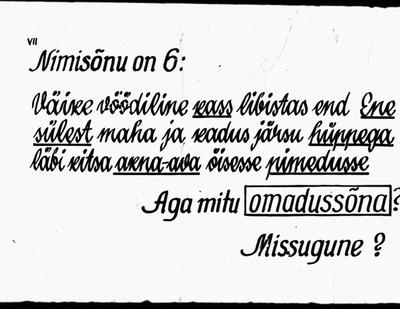 VII
Nimisõnu on 6:
Väike vöödiline kass libistas end Ene
sülest maha ja kadus järsu hüppega
läbi kitsa akna-ava öisesse pimedusse
Aga mitu omadussõna?
Missugune?